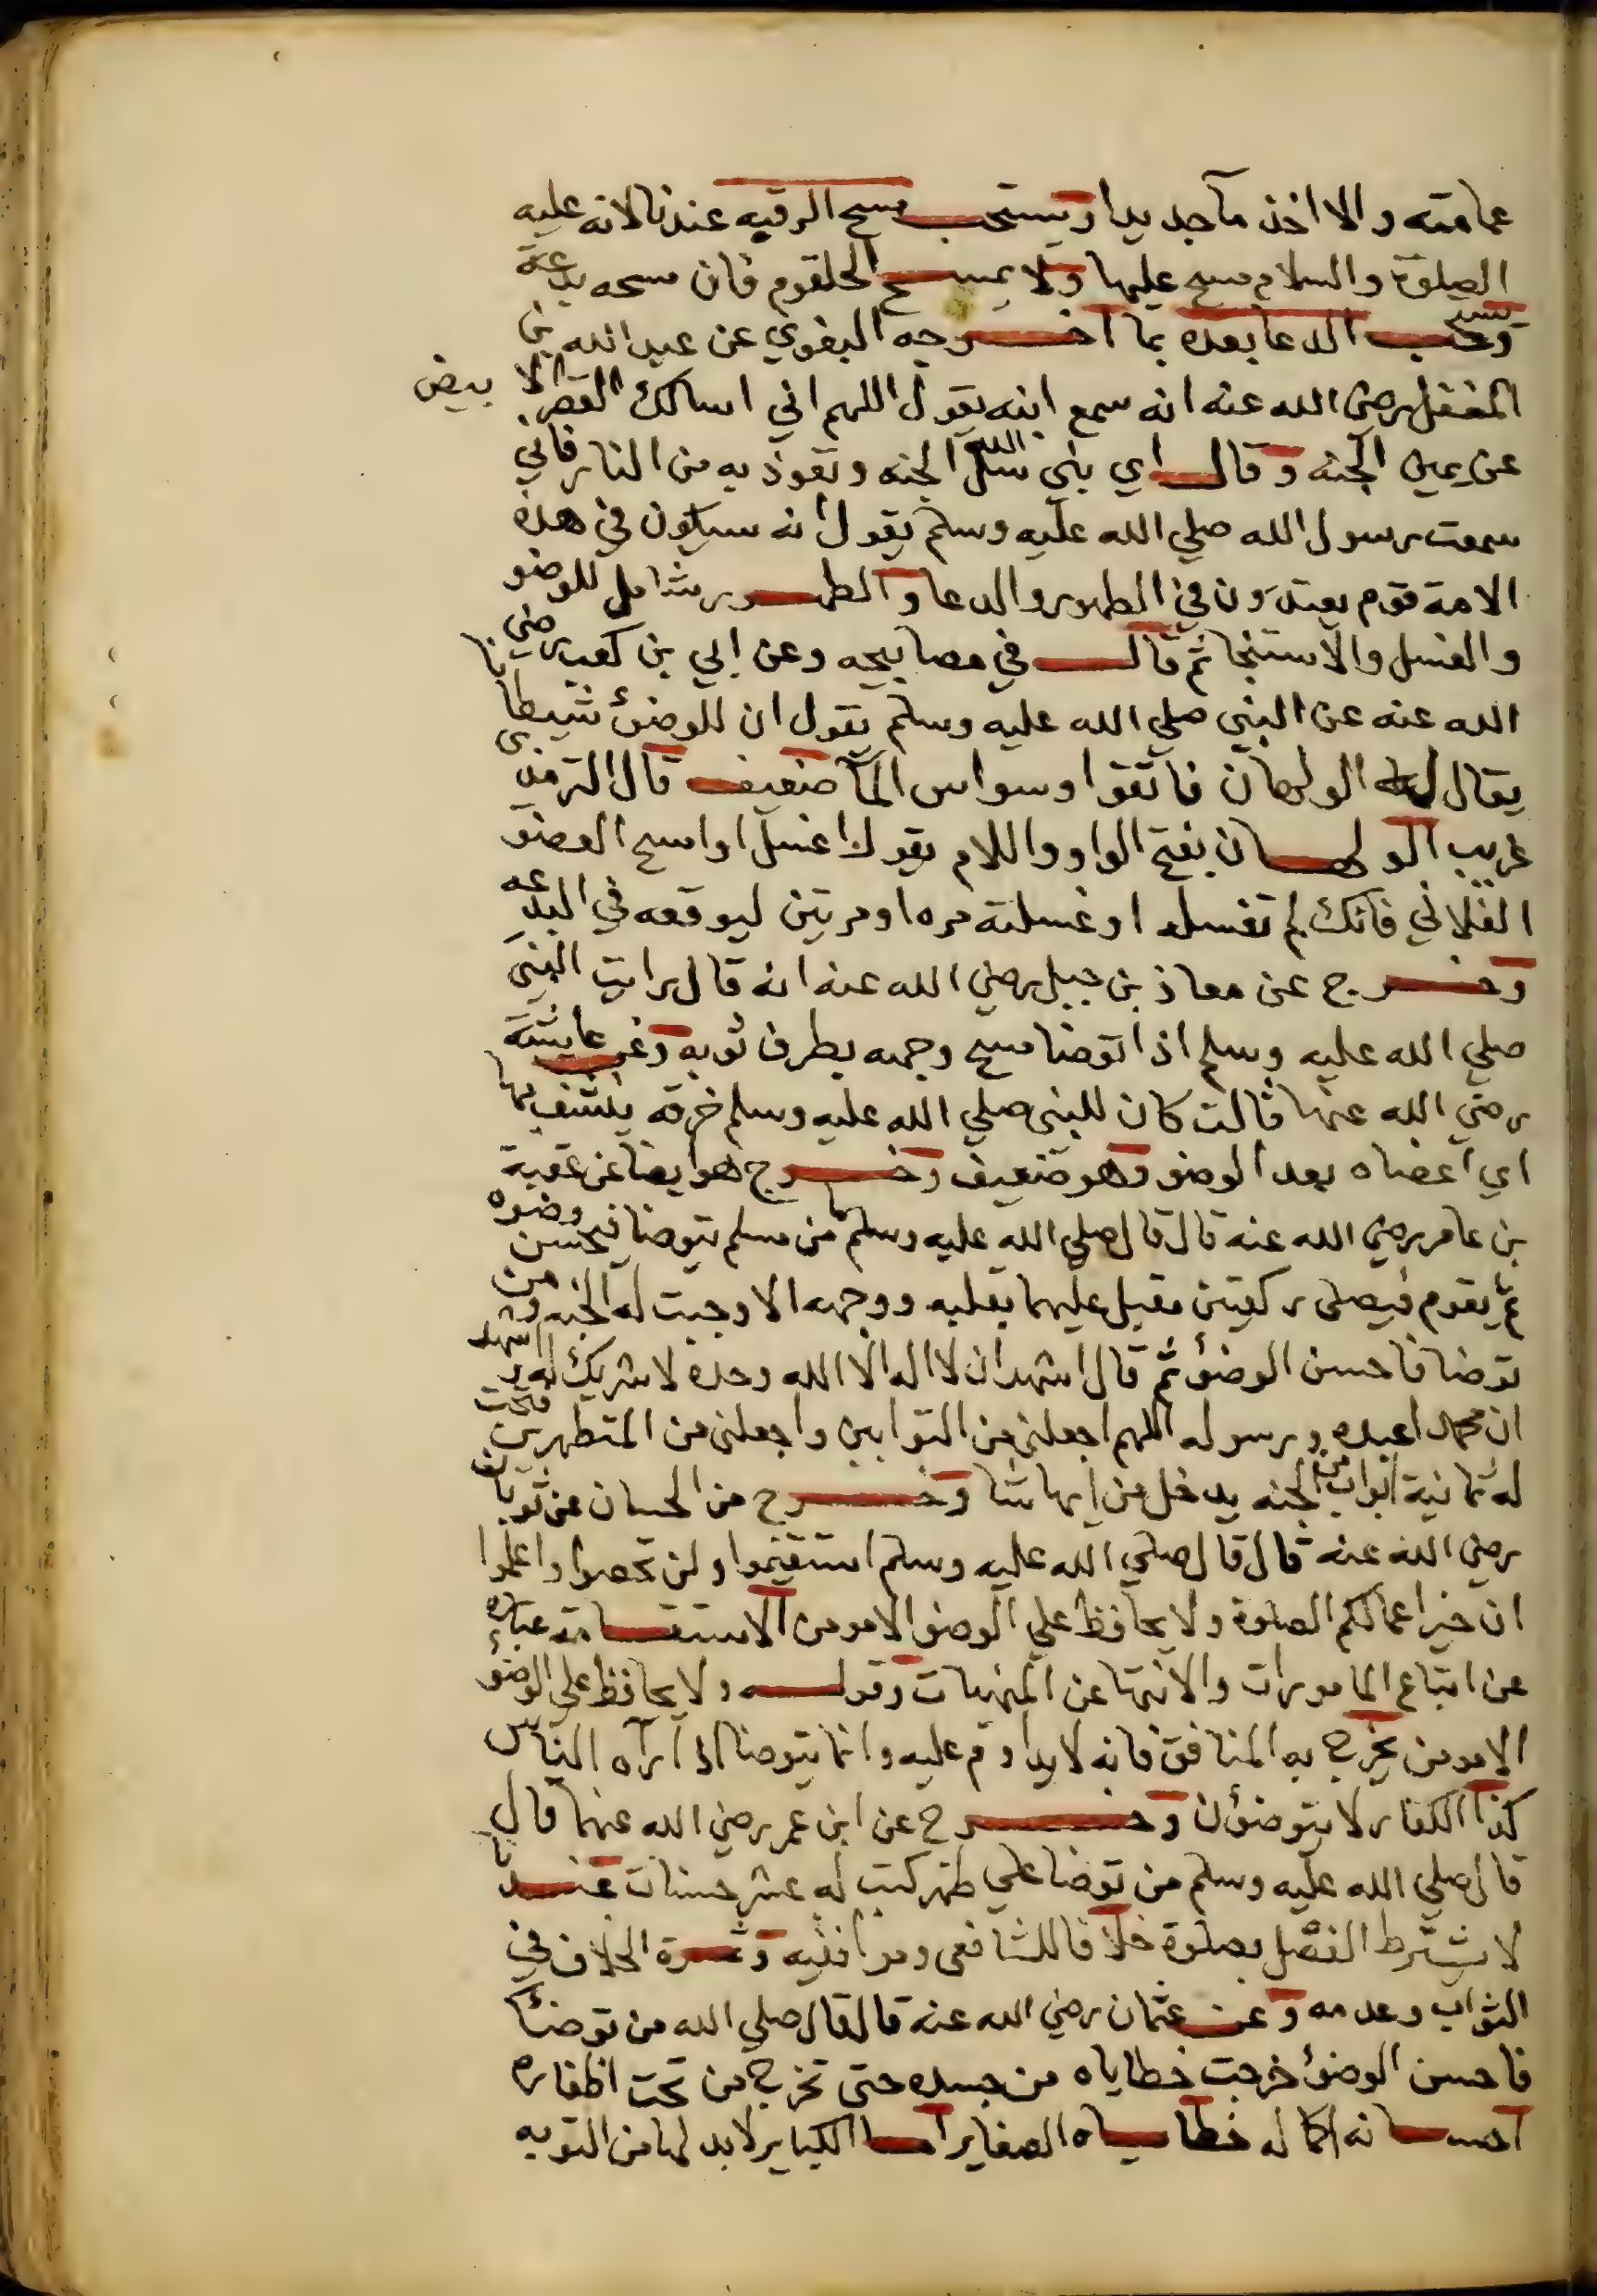 عمامته والا اخذ مآجديدا ويستحب مسح الرقبه عندنا لانه عليه
الصلوة والسلام مسح عليها ولا يمسح الحلقوم فان مسحه بدعة
ويستحب الدعا بعده بما اخرجه البغوي عن عبد الله بن
المغفل رضي الله عنه انه سمع ابنه يقول اللهم اني اسالك القصر الابيض
عن يمين الجنه وقال اي بني سل الله الجنه وتعوذ به من النار فاني
سمعت رسول الله صلي الله عليه وسلم يقول انه سيكون في هذه
الامة قوم يعتدون في الطهور والدعا والطهور شامل للوضو
والغسل والاستنجا ثم قال في مصابيحه وعن ابي بن كعب رضي
الله عنه عن النبي صلي الله عليه وسلم يقول ان للوضؤ شيطانا
يقال له الولهان فاتقوا وسواس المآ ضعيف قال الترمذي
غريب الولهان بفتح الواو واللام يقول اغسل او امسح العضو
الفلاني فانك لم تغسله او غسلته مره او مرتين ليوقعه في البدعه
وخرج عن معاذ بن جبل رضي الله عنه انه قال رايت النبي
صلي الله عليه وسلم اذا توضا مسح وجهه بطرف ثوبه وعن عايشة
رضي الله عنها قالت كان للنبي صلي الله عليه وسلم خرقه ينشف بها
اي اعضاه بعد الوضو وهو ضعيف وخرج هو ايضا عن عقبة
بن عامر رضي الله عنه قال قال صلي الله عليه وسلم ما من مسلم يتوضا فيحسن وضوه
ثم يقوم فيصلى ركعتين مقبل عليهما بقلبه ووجهه الا وجبت له الجنه ومن
توضا فاحسن الوضؤ ثم قال اشهد ان لا اله الا الله وحده لا شريك له واشهد
ان محمدا عبده ورسوله اللهم اجعلني من التوابين واجعلني من المتطهرين فتحت
له ثمانية ابواب من الجنه يدخل من ايها شا وخرج من الحسان عن ثوبان
رضي الله عنه قال قال صلي الله عليه وسلم استقيموا ولن تحصوا واعلموا
ان خير اعمالكم الصلوة ولا يحافظ علي الوضو الا مومن الاستقامة عبارة
عن اتباع المامورات والانتها عن المنهيات وقوله ولا يحافظ علي الوضؤ
الا مومن يخرج به المنافق فانه لا يداوم عليه وانما يتوضا اذا رآه الناس
كذا الكفار لا يتوضؤن وخرج عن ابن عمر رضي الله عنهما قال
قال صلي الله عليه وسلم من توضا علي طهر كتب له عشر حسنات عندنا
لا يشترط الفصل بصلوة خلافا للشافعى وموافقيه وثمرة الخلاف في
الثواب وعدمه وعن عثمان رضي الله عنه قال قال صلي الله من توضأ
فاحسن الوضؤ خرجت خطاياه من جسده حتى تخرج من تحت اظفاره
احسانه اكماله خطاياه الصغاير اما الكباير لابد لها من التوبه